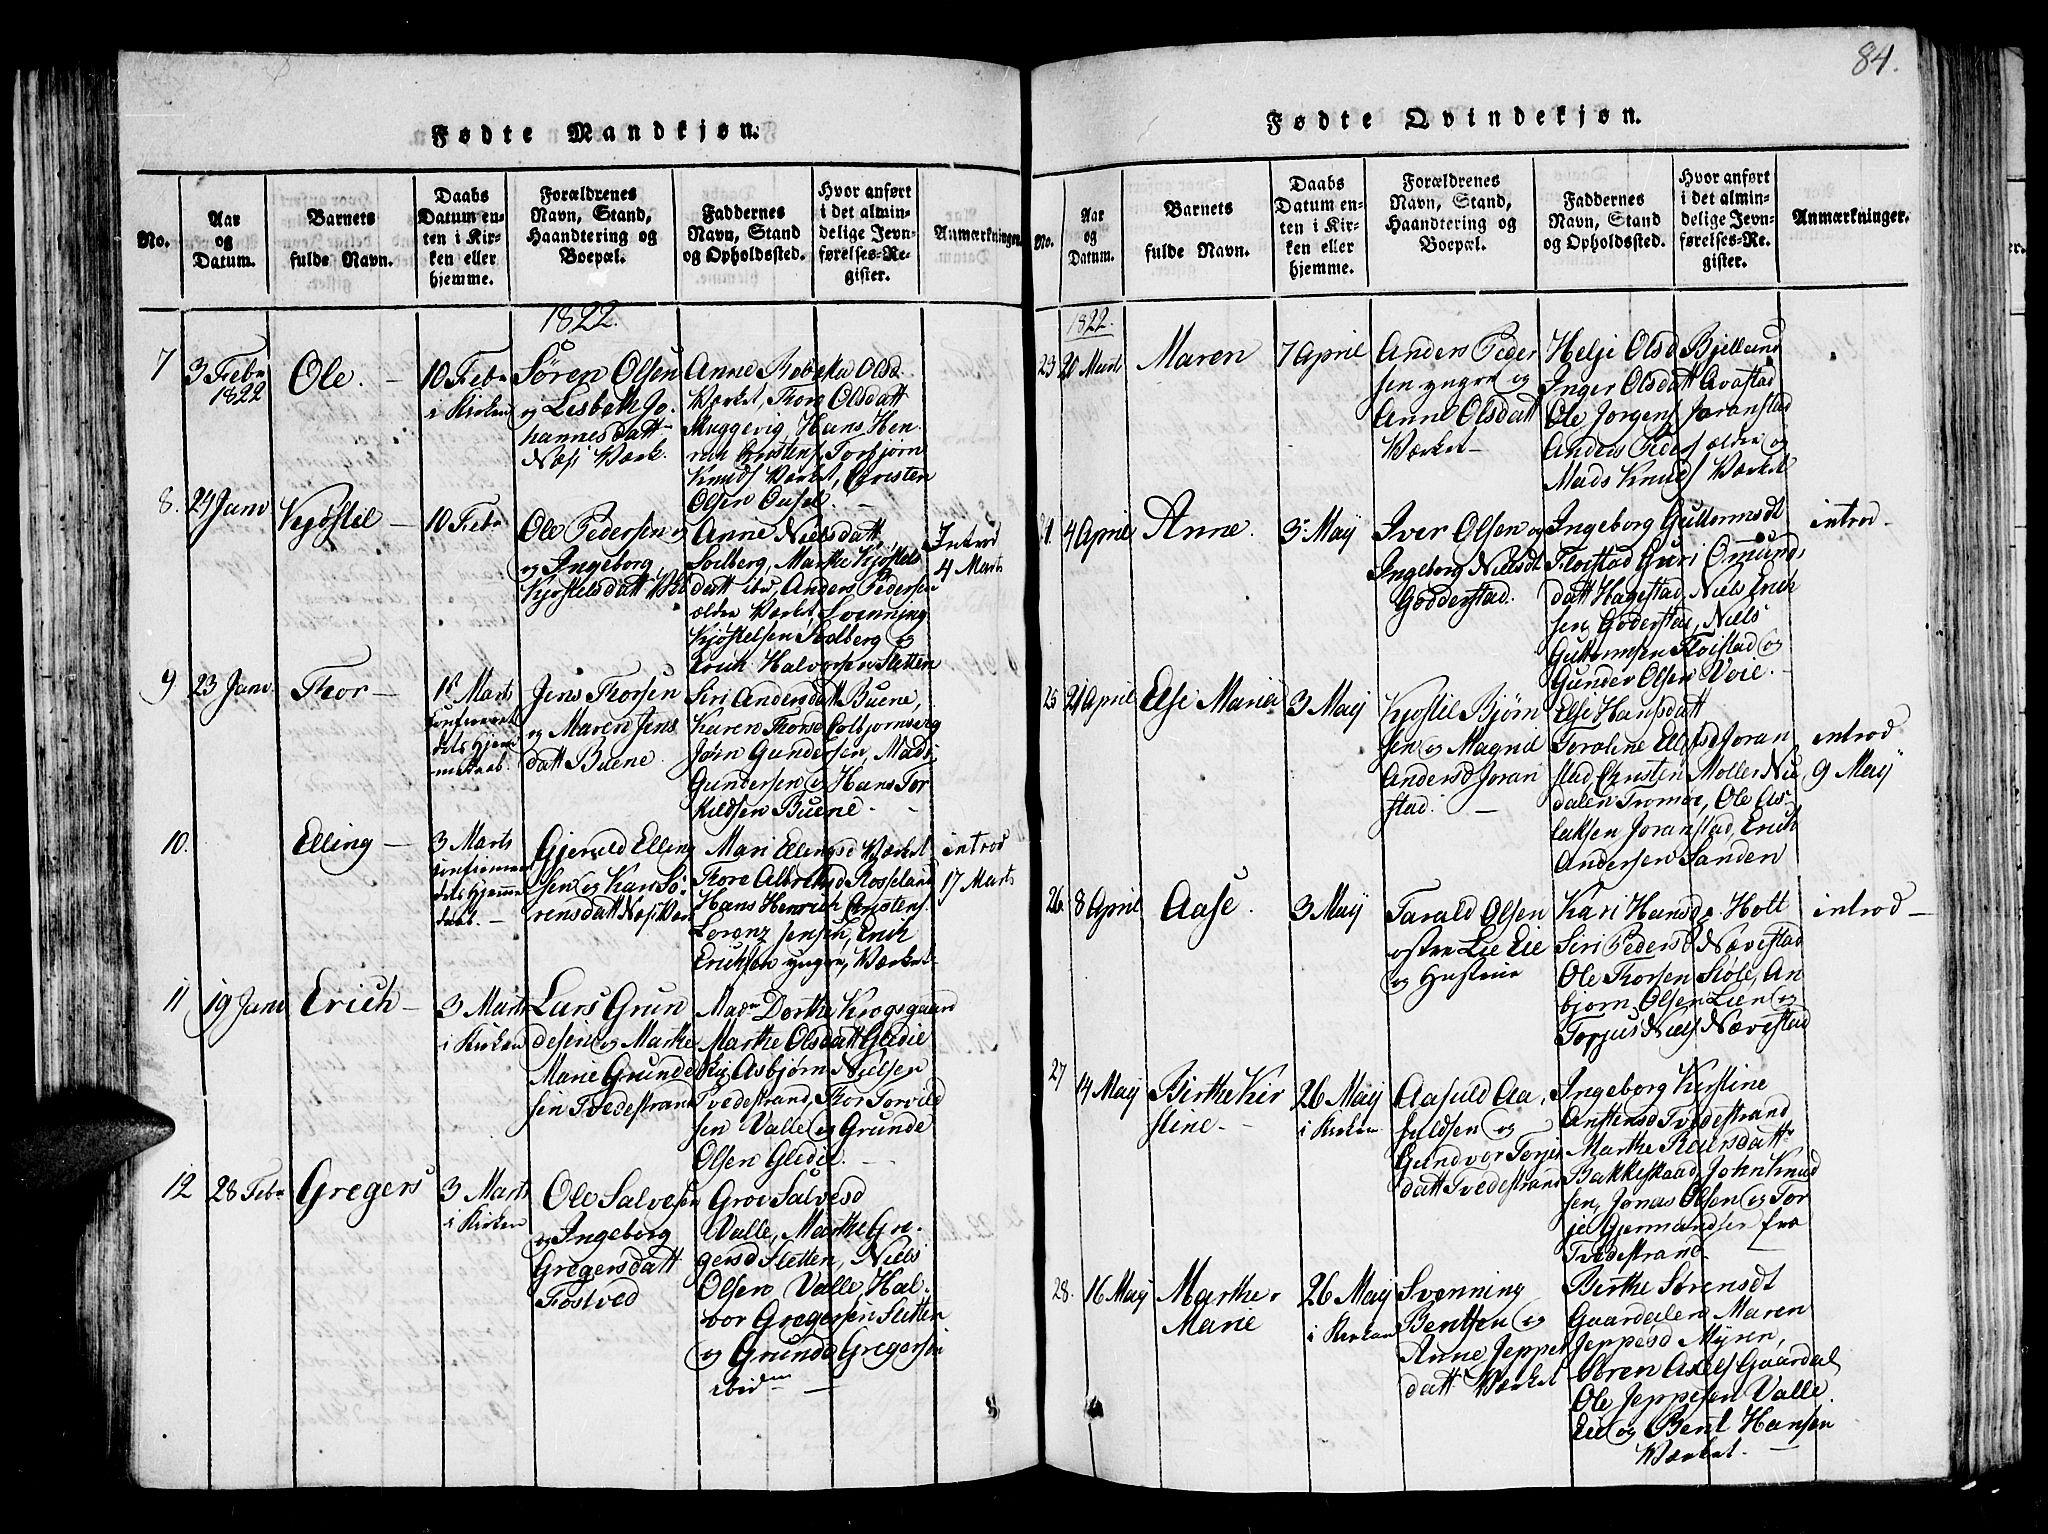 84.
Fødte Mandkjøn.
No.
Aar og Datum.
Barnets fulde Navn.
Daabs Datum enten i Kirken eller hjemme.
Forældrenes Navn, Stand, Haandtering og Boepæl.
Faddernes Navn, Stand og Opholdssted.
Hvor anført i det almindelige Jevnførelses-Register.
Anmærkninger.
1822.
7
3 Febr
1822
Ole.
10 Febr
i Kirken
Søren Olsen
og Lisbeth Jo-
hannesdatt
Næs Værk.
Anne Olsd.
Værket, Olsdatt
Hans Hen
Torbjørn
Værket, Christen
Olsen
8.
24 Janv
Kjøstil
10 Febr
Ole Pedersen
og Ingeborg
Kjøstelsdatt
Anne Nielsdatt
Solberg, Marthe Kjøstels
datt ibd, Anders Pedersen
ældre Værket, Svenning
Kjøstelsen Solberg og
Erich Halvorsen Sletten
Introd
4 Marts
9
23 Janv.
Thor
Marts
Jens Thorsen
og Maren Jens
datt Buene.
Siri Andersdatt Buene,
Karen Thorsd Colbjornsberg
Jørn Gundersen, Mads
Gundersen og Hans Tor
kildsen Buene.
10.
Elling
3 Marts
Gjeruld Elling
sen og Kari Sø-
rensdatt
Mari Ellingsd Værket
Thore Roseland
Hans Henrich Christens.
Lorenz Jensen, Erich
Erichsen yngre, Værket
introd
17 Marts
11
19 Janv
Erich
3 Marts
i Kirken
Lars Grun
desen og Marthe
Marie Grunde
sen Tvedestrand
Madm Dorthe Krogsgaard
Marthe Olsdatt Gledie
Asbjørn Nielsen
Tvedestrand, Thor Torvild
sen Valle og Grunde
Olsen Gledie.
12
28 Febr
Gregers
3 Marts
i Kirken
Ole Salvesen
og Ingeborg
Gregersdatt
Fostved
Groe Salvesd
Valle, Marthe Gre-
gersd Sletten, Niels
Olsen Valle, Hal-
vor Gregersen Sletten
og Grunde Gregersen
ibid
Fødte Qvindekjøn.
No.
Aar og Datum.
Barnets fulde Navn.
Daabs Datum enten i Kirken eller hjemme.
Forældrenes Navn, Stand, Haandtering og Boepæl.
Faddernes Navn, Stand og Opholdssted.
Hvor anført i det almindelige Jevnførelses-Register.
Anmærkninger.
1822.
23
20 Marts
Maren
7 April
Anders Peder
sen yngre og
Anne Olsdatt
Værket
Helje Olsd Bjelland
Inger Olsdatt Avastad
Ole Jorgens Joranstad
Anders Peders ældre og
Mads Knuds Værket
4 April
Anne.
3 Maij
Iver Olsen og
Ingeborg Nielsdt
Godderstad.
Ingeborg Guttormsdt
Floistad Guri Omunds
datt Hagestad, Niels Erich
sen, Goderstad, Niels
Guttormsen Floistad og
Gunder Olsen Voie.
introd
25
21 April
Else Maria
3 Maij
Kjøstil Bjørn
sen og Magnil
Andersd Joran
stad.
Else Hansdatt
Toroline Ellefsd Joran
stad Christen Moller Nie
dalen Tromøe, Ole As-
laksen Joranstad, Erich
Andersen Sanden
introd
9 Maij
26
8 April
Aase.
3 Maij
Tarald Olsen
østre Lie Eie
og Hustrue
Kari Hansd. Holt
Siri Pedersd Nævestad
Ole Thorsen Støle, An
bjorn Olsen Lien og
Torjus Niels Nævestad
introd
27
14 Maij
Birthe Kir
stine.
26 Maij
i Kirken
Aasuld Aa
suldsen og
Gundvor Torjes
datt Tvedestrand
Ingeborg Kirstine
Anstensd Tvedestrand
Marthe Reiersdatt
Bakkeskaad, John Knud
sen, Jonas Olsen og Tor
je Gjermundsen fra
Tvedestrand.
28.
16 Maij
Marthe
Marie
26 Maij
i Kirken
Svenning
Bentsen og
Anne Jeppes
datt Værket
Birthe Sørensdt
Gaardalen Maren
Jeppesd Myren,
Søren Axels Gaardal
Ole Jeppesen Valle
Eie og Bent Hansen
Værket.